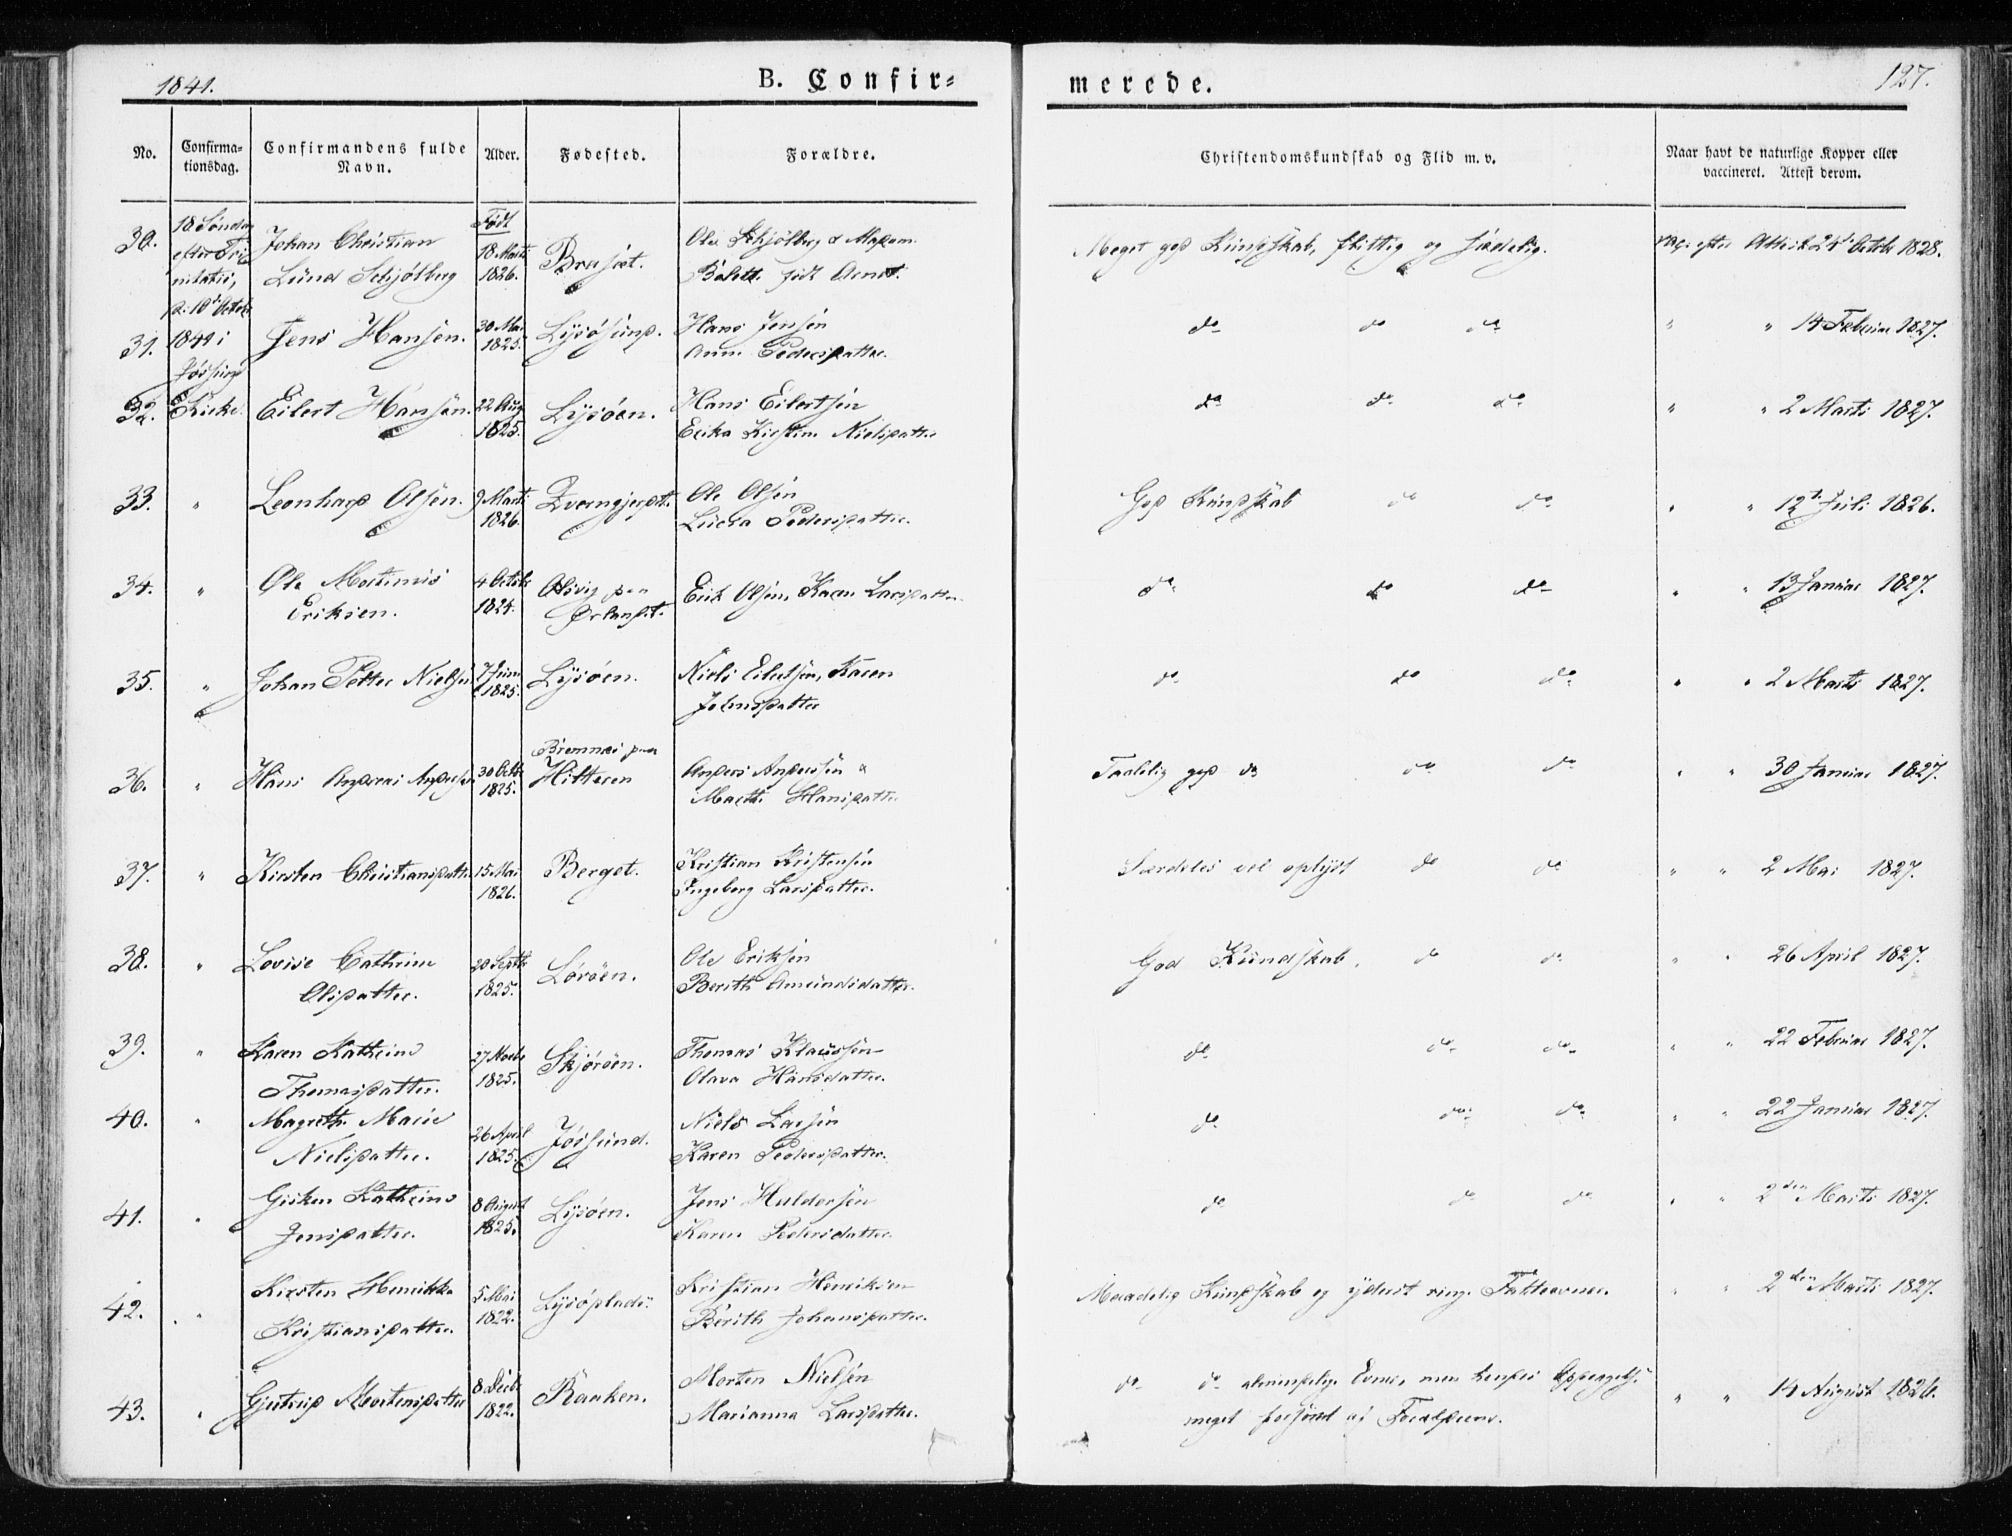 1841.
B. Confir=
merede.
127.
No.
Confirma-
tionsdag.
Confirmandens fulde
Navn.
Alder.
Fødested.
Forældre.
Christendomskundskab og Flid m. v.
Naar havt de naturlige Kopper eller
vaccineret. Attest derom.
30. 18 Søndag efter Tri- nitatis, 10d Octob Johan Christian Lund Schjølberg Født 18 Marts 1826. Ole Schjølberg & Madam født Arnet. Meget god Kundskab, flittig og sædelig. vac: efter Attest 24d Octobr 1828.
31. 1841 i Jøssund Jens Hansen. 30 Mai 1825. Lysøsund. Hans Jensen Anne Pedersdatter. do do do " " 14 Februar 1827.
32. Kirke. Eilert Hansen. 22 Aug 1825. Lysøen. Hans Eilertsen Erika Kirstine Nielsdatter do do do " " 2 Marts 1827.
33. " Leonhard Olsen. 9 Marts 1826. Ole Olsen Pedersdatter. God Kundskab do do " " 12t Juli 1826.
34. " Ole Martinus Eriksen. 4 Octobr 1824. Olsvig paa Ørlandet. Erik Olsen, Karen Larsdatter. do do do " " 13 Januar 1827.
35. " Johan Petter Nielsen 7 Juni 1825. Lysøen. Niels Eilertsen, Karen Johnsdatter do do do " " 2 Marts 1827.
36. " Hans Andreas Andersen 30 Octbr 1825. Bremnes paa Hitteren Anders Andersen & Marth Hansdatter Taalelig god do do do " " 30 Januar 1827.
37. " Kirsten Christiansdatter 15 Mai 1826. Berget. Kristian Kristensen Ingeborg Larsdatter. Særdeles vel oplyst do do " " 2 Mai 1827.
38. " Lovise Cathrine Olsdatter. 20 Septbr 1825. Lørøen. Ole Eriksen Berith Amundsdatter. God Kundskab. do do " " 26 April 1827.
39. " Karen Kathrine Thomasdatter. 27 Novbr 1825. Skjørøen. Thomas Klaussen Olava Hansdatter. do do do " " 22 Februar 1827.
40. " Magrethe Marie Nielsdatter. 26 April 1825. Jøssund. Niels Larsen Karen Pedersdatter. do do do " " 22 Januar 1827.
41. " Gisken Kathrine Jensdatter. 8 August 1825. Lysøen. Jens Haldorsen Karen Pedersdatter. do do do " " 2den Marts 1827.
42. " Kirsten Henrikka Kristiansdatter. 5 Mai 1822. Kristian Henriksen Berith Johansdatter. Maadelig Kundskab og yderst ringe Fatteevner. " " 2den Marts 1827.
43. " Gjertrud Mortensdatter 8 Decbr 1822. Raaken. Morten Nielsen Marianna Larsdatter. do do almindelige Evner, men hendes Opdragelse meget forsømt af Forældrene. " " 14 August 1826.